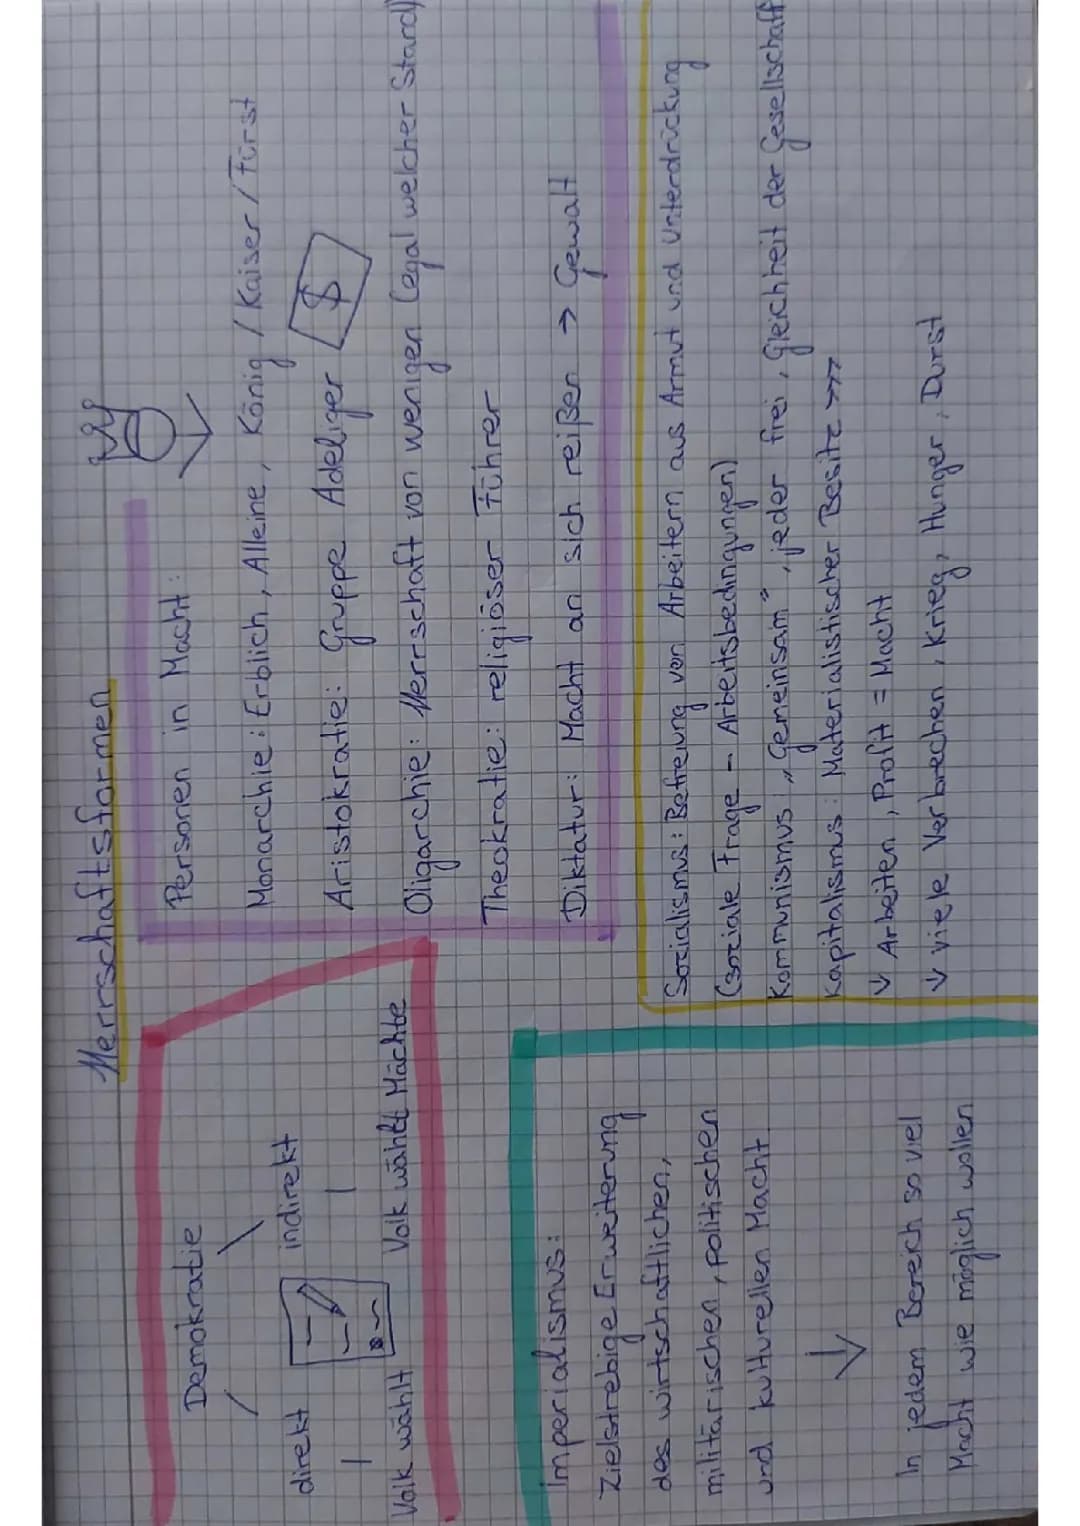 Herrschaftsformen
Demokratie
direkt
indirekt
Volk wählt
Volk wählt Mächte
Personen in Macht:
Monarchie: Erblich, Alleine, König / Kaiser / Fürst
Aristokratie: Gruppe Adeliger $
Oligarchie: Herrschaft von wenigen (egal welcher Stand)
Theokratie: religiöser Führer
Diktatur: Macht an sich reißen → Gewalt
Imperialismus:
Zielstrebige Erweiterung
des wirtschaftlichen,
militärischen, politischen
und kulturellen Macht
↓
In jedem Bereich so viel
Macht wie möglich wollen
Sozialismus: Befreiung von Arbeitern aus Armut und Unterdrückung
(soziale Frage - Arbeitsbedingungen)
Kommunismus: „Gemeinsam“, jeder frei, Gleichheit der Gesellschaft
Kapitalismus: Materialistischer Besitz >>>
↓ Arbeiten, Profit = Macht
↓ viele Verbrechen, Krieg, Hunger, Durst